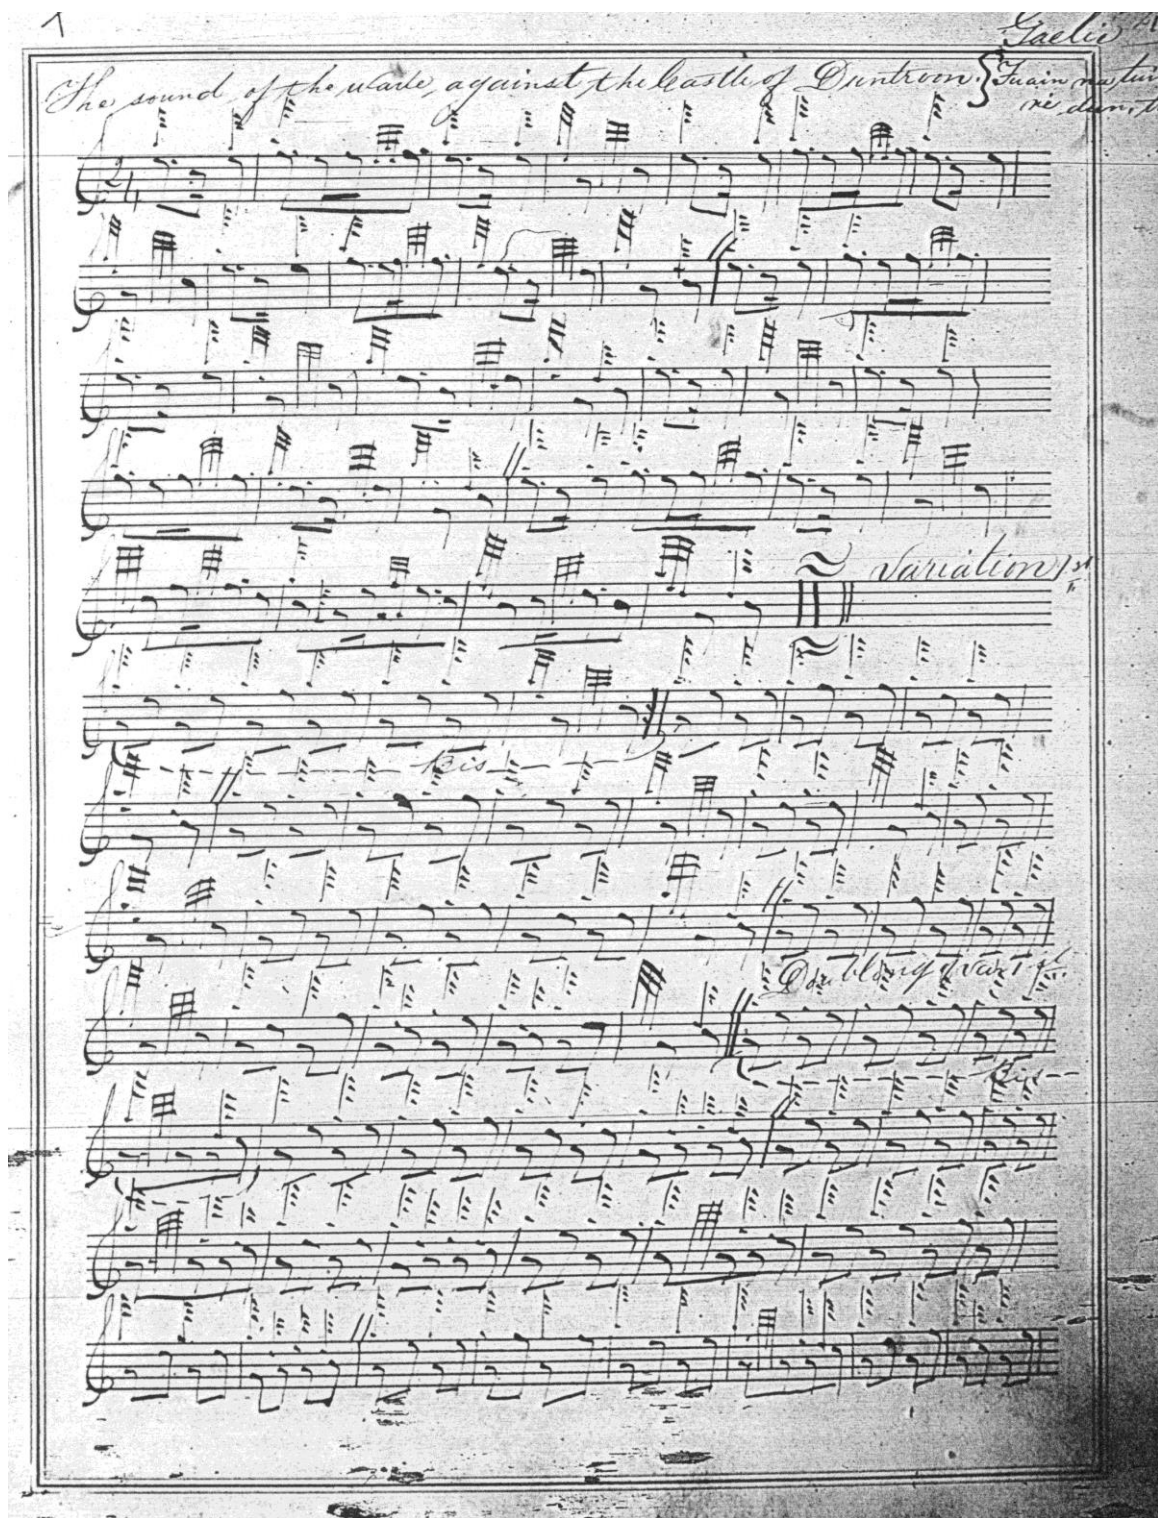 1
Gaelic
The sound of the wave against the Castle of Duntroon. { Fuaim na tuin
ri dun, t
2/4
Variation 1st
Bis
Doubling of var. 1st.
Bis